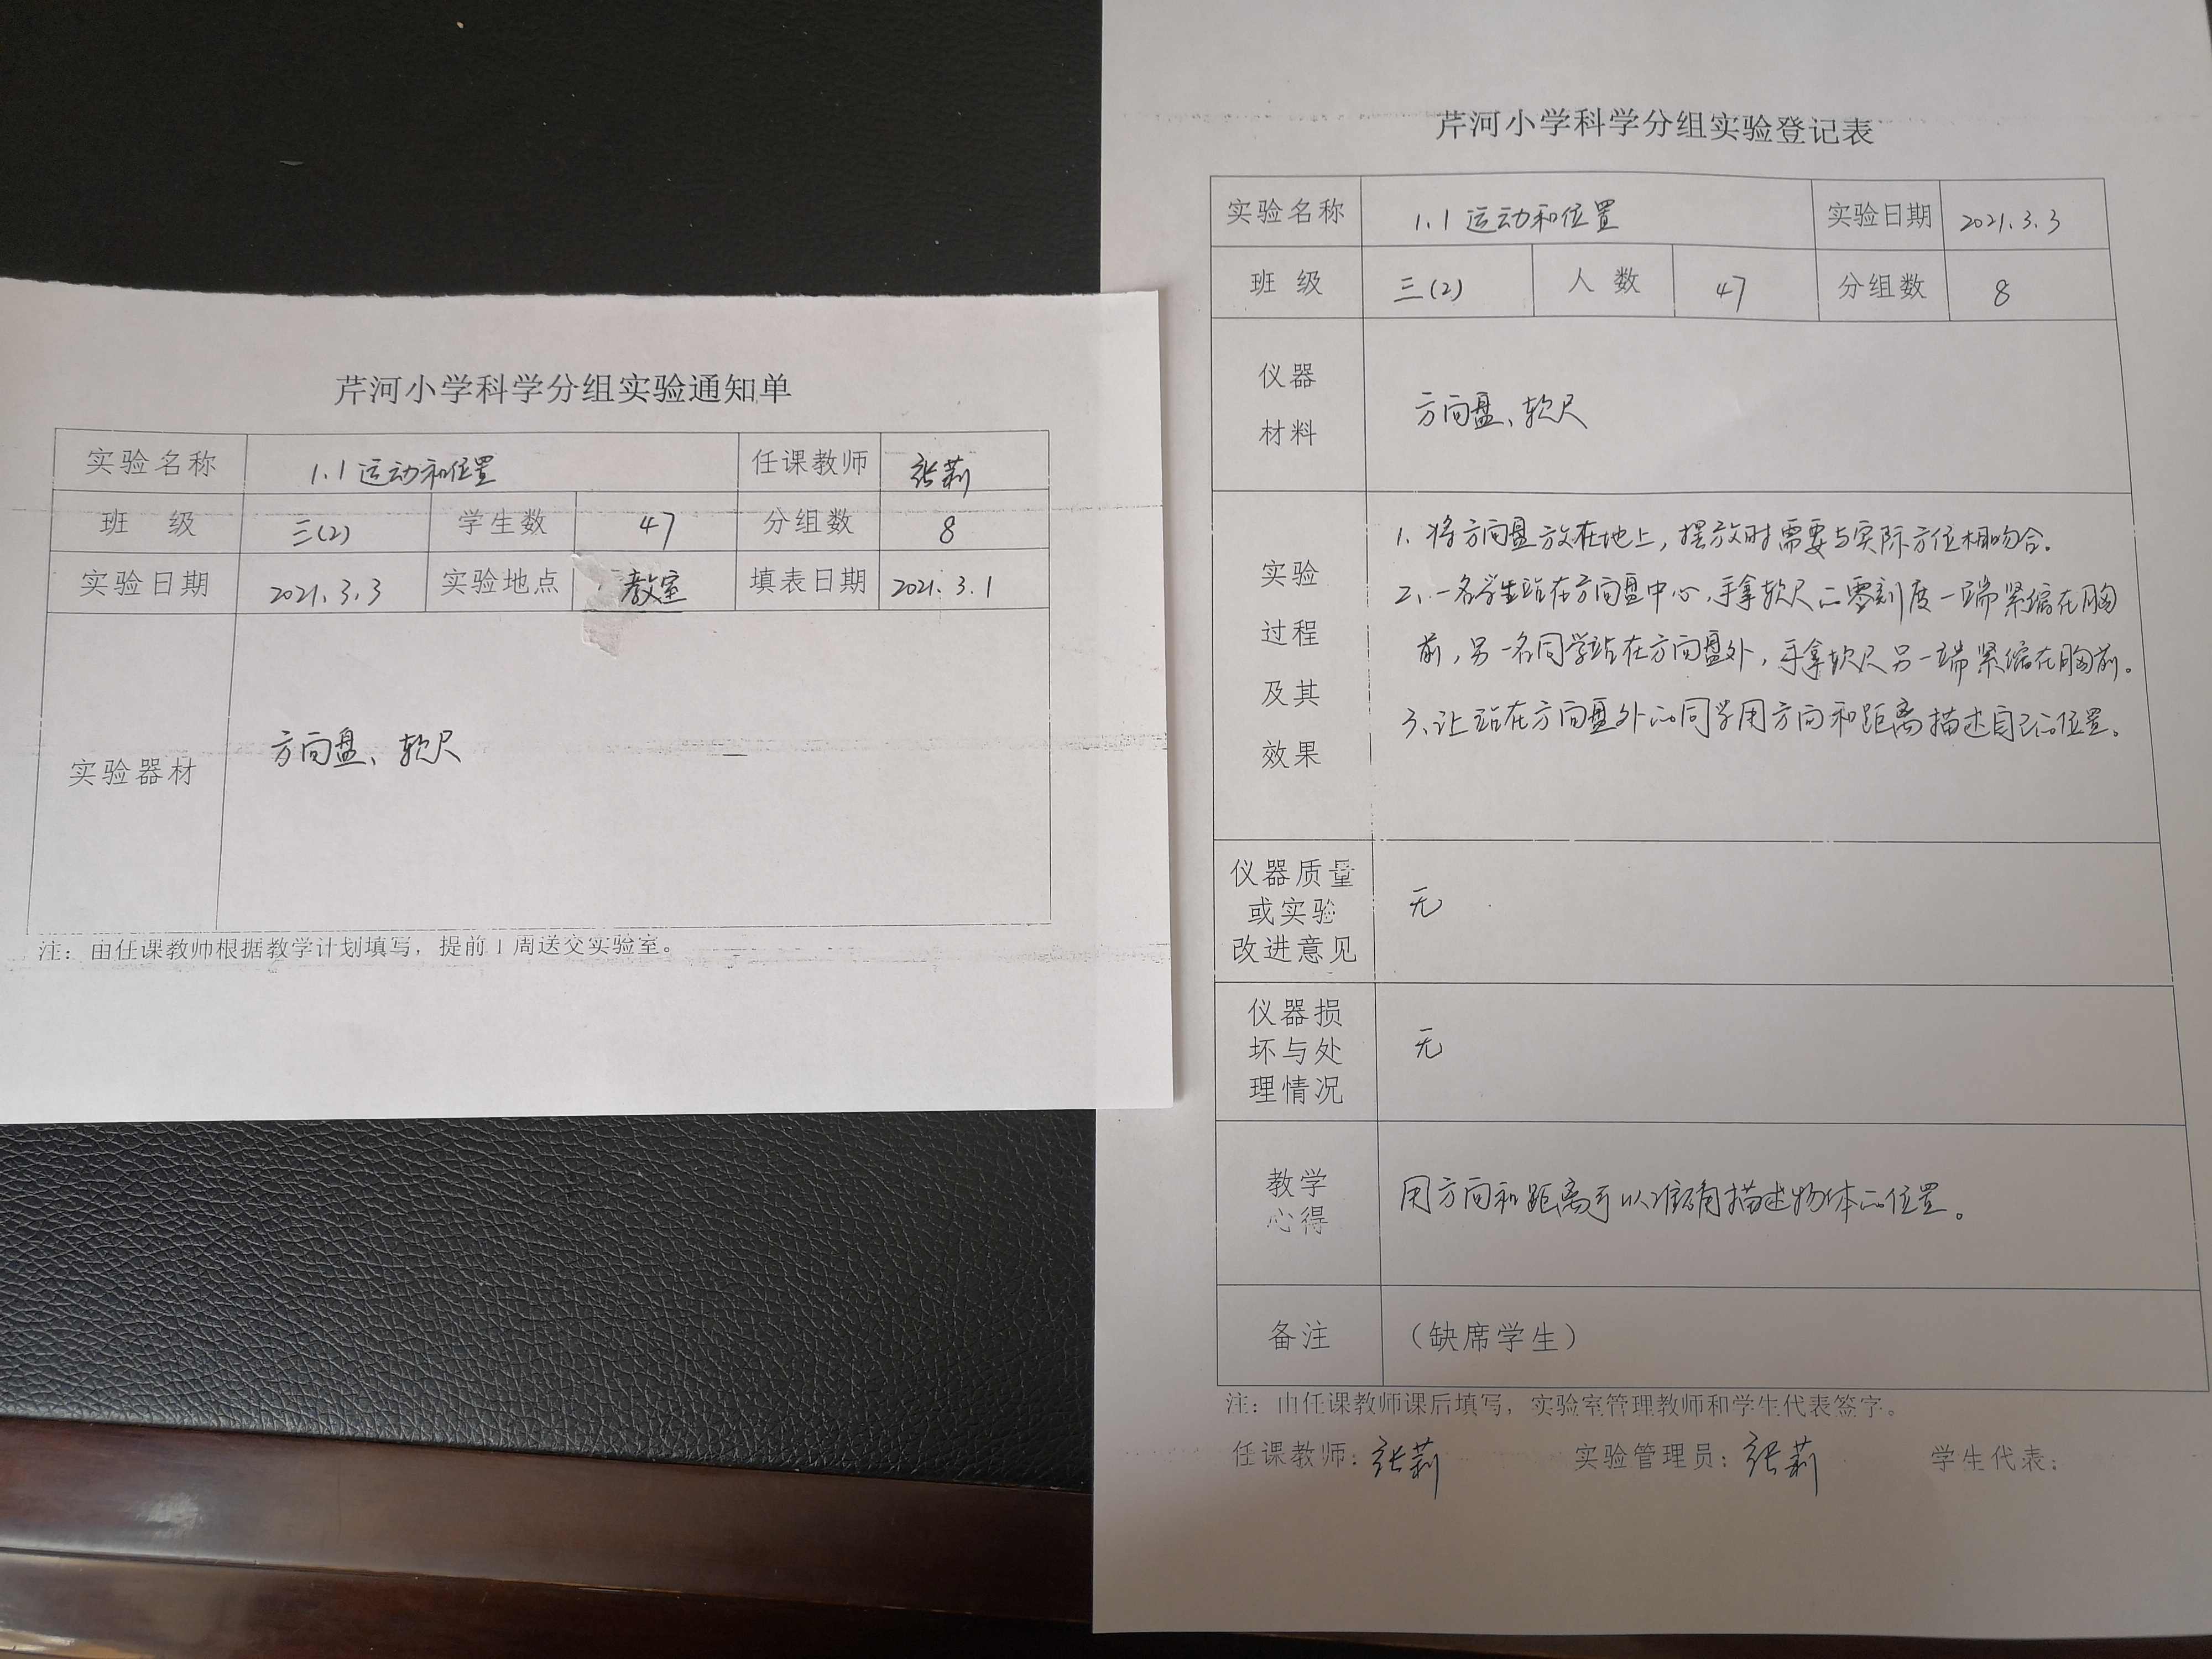 芹河小学科学分组实验通知单
实验名称 1.1 运动和位置 任课教师 张莉
班 级 三(2) 学生数 47 分组数 8
实验日期 2021.3.3 实验地点 教室 填表日期 2021.3.1
实验器材 方向盘、软尺
注：由任课教师根据教学计划填写，提前1周送交实验室。
芹河小学科学分组实验登记表
实验名称 1.1 运动和位置 实验日期 2021.3.3
班 级 三(2) 人 数 47 分组数 8
仪器
材料
方向盘、软尺
实验
过程
及其
效果
1. 将方向盘放在地上，摆放时需要与实际方位相吻合。
2. 一名学生站在方向盘中心，手拿软尺的零刻度一端紧缩在胸
前，另一名同学站在方向盘外，手拿软尺另一端紧缩在胸前。
3. 让站在方向盘外的同学用方向和距离描述自己的位置。
仪器质量
或实验
改进意见
无
仪器损
坏与处
理情况
无
教学
心得
用方向和距离可以准确描述物体的位置。
备注 （缺席学生）
注：由任课教师课后填写，实验室管理教师和学生代表签字。
任课教师：张莉 实验管理员：张莉 学生代表：